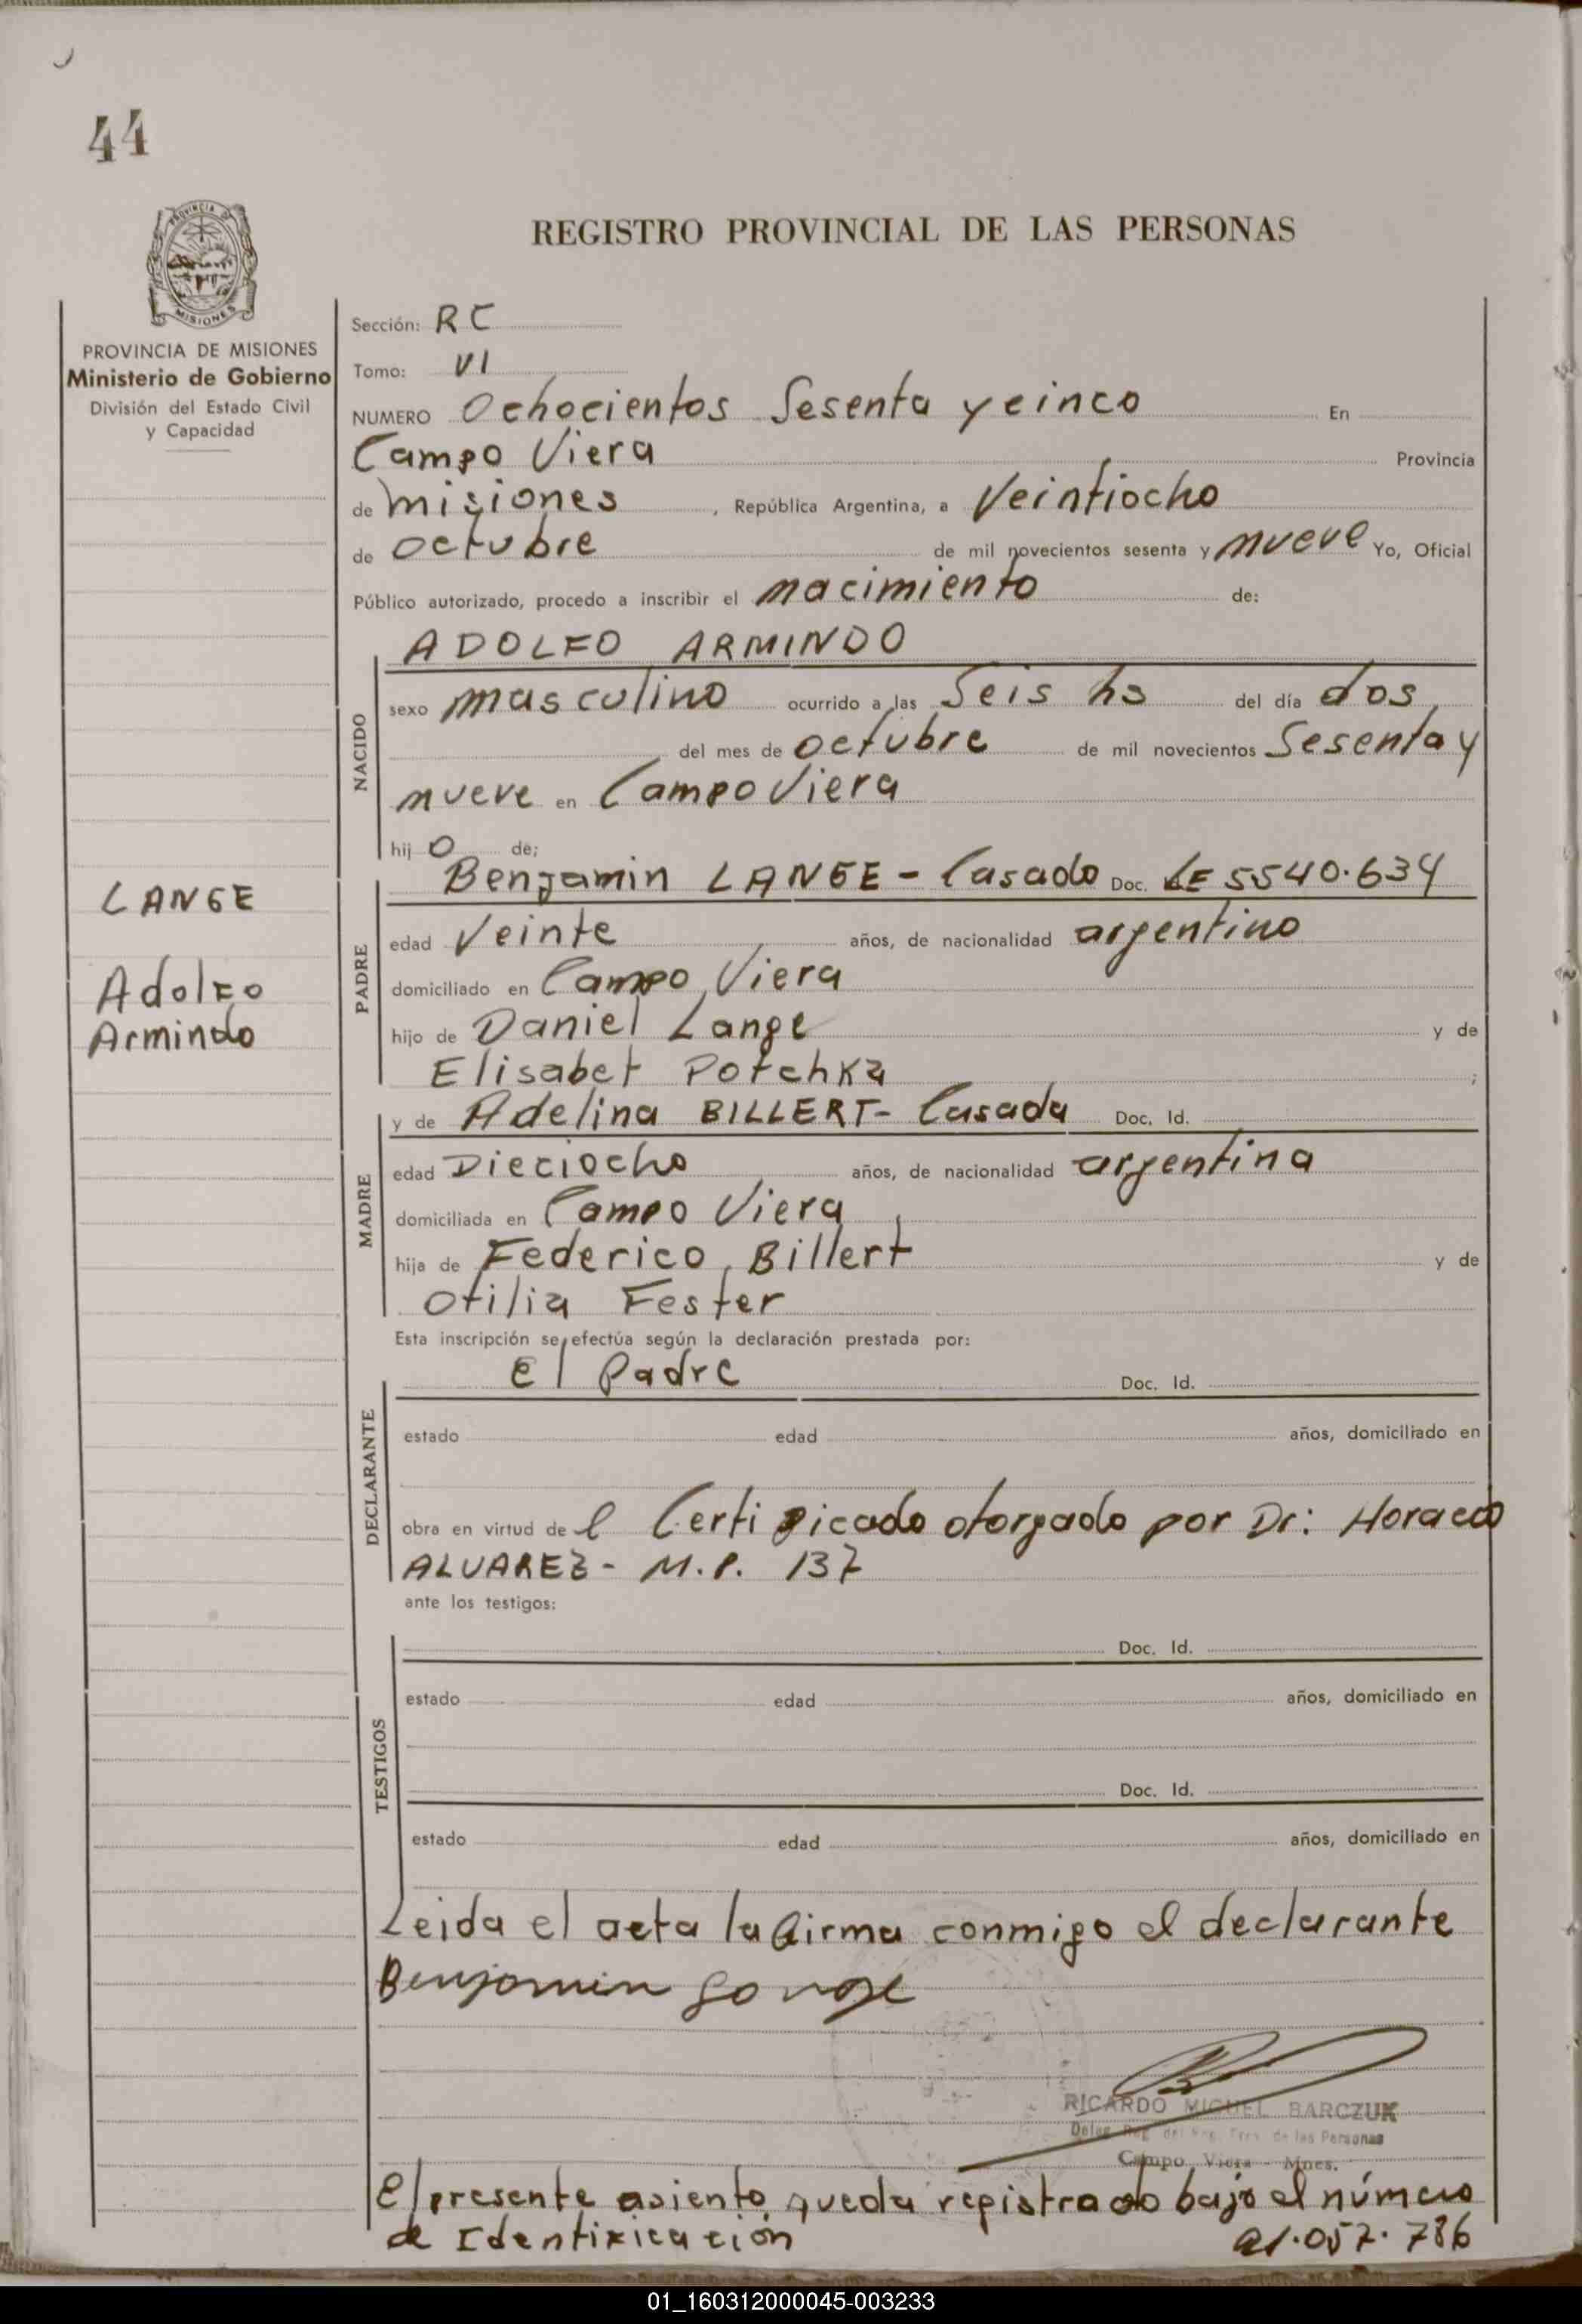 44
REGISTRO PROVINCIAL DE LAS PERSONAS
PROVINCIA DE
MISIONES
PROVINCIA DE MISIONES
Ministerio de Gobierno
División del Estado Civil
y Capacidad
LANGE
Adolfo
Armindo
Sección: RC
Tomo: VI
NUMERO Ochocientos Sesenta y cinco En
Campo Viera Provincia
de misiones, República Argentina, a Veintiocho
de octubre de mil novecientos sesenta y nueve Yo, Oficial
Público autorizado, procedo a inscribir el nacimiento de:
ADOLFO ARMINDO
NACIDO
sexo masculino ocurrido a las Seis hs del día dos
del mes de octubre de mil novecientos Sesenta y
nueve en Campo Viera
hijo de;
PADRE
Benjamin LANGE - Casado Doc. LE 5540.634
edad Veinte años, de nacionalidad argentino
domiciliado en Campo Viera
hijo de Daniel Lange y de
Elisabet Potchka ;
MADRE
y de Adelina BILLERT - Casada Doc. Id.
edad Dieciocho años, de nacionalidad argentina
domiciliada en Campo Viera
hija de Federico Billert y de
Otilia Fester
Esta inscripción se efectúa según la declaración prestada por:
DECLARANTE
el Padre Doc. Id.
estado edad años, domiciliado en
obra en virtud del Certificado otorgado por Dr: Horacio
ALVAREZ - M.P. 137
ante los testigos:
TESTIGOS
Doc. Id.
estado edad años, domiciliado en
Doc. Id.
estado edad años, domiciliado en
Leida el acta la firma conmigo el declarante
Benjamin Lange
RICARDO MIGUEL BARCZUK
Deleg. Reg. del Reg. Prov. de las Personas
Campo Viera - Mnes.
El presente asiento queda registrado bajo el número
de Identificación 21.057.786
01_160312000045-003233